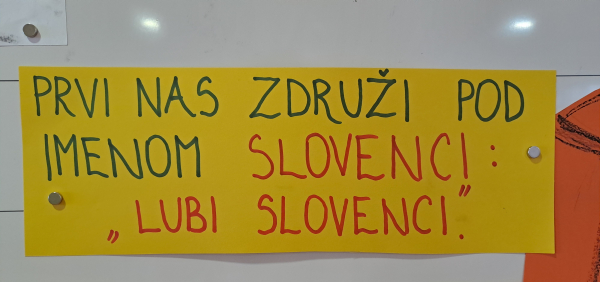 PRVI NAS ZDRUŽI POD
IMENOM SLOVENCI:
„LUBI SLOVENCI."